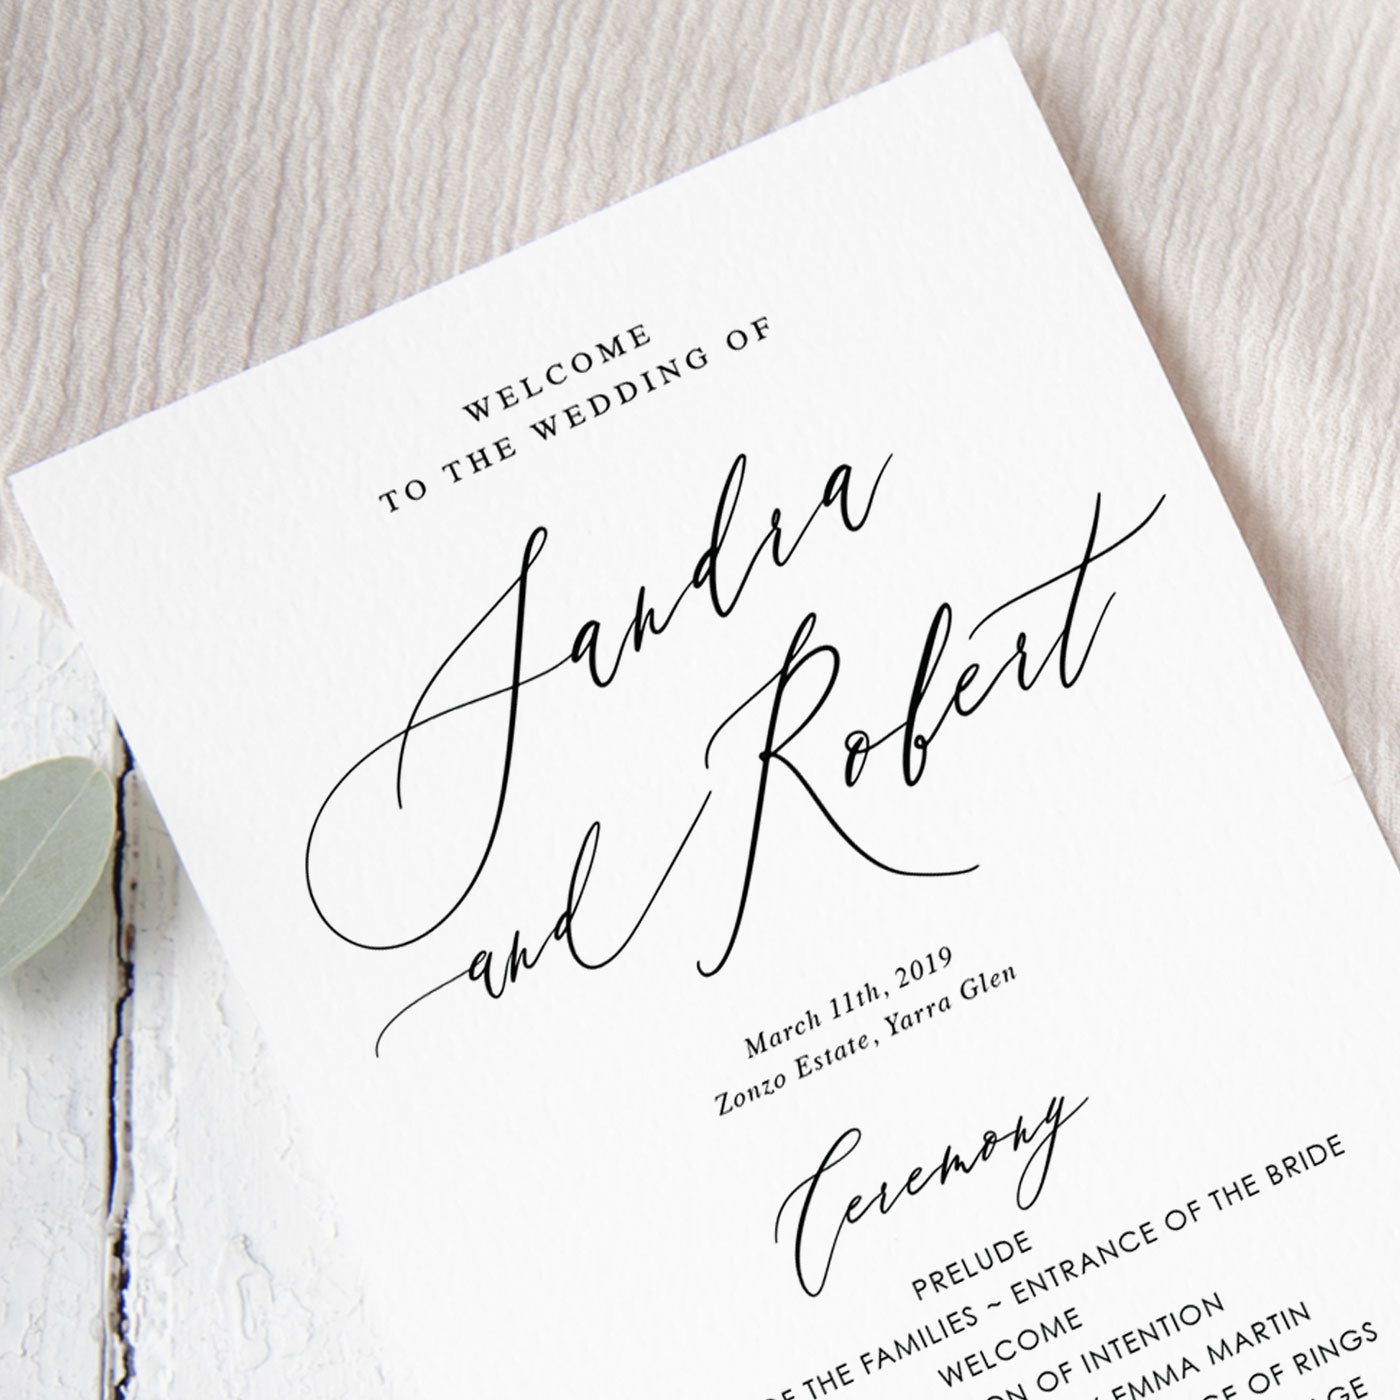 WELCOME
TO THE WEDDING OF
Sandra
and Robert
March 11th, 2019
Zonzo Estate, Yarra Glen
Ceremony
PRELUDE
THE FAMILIES ~ ENTRANCE OF THE BRIDE
WELCOME
OF INTENTION
EMMA MARTIN
OF RINGS